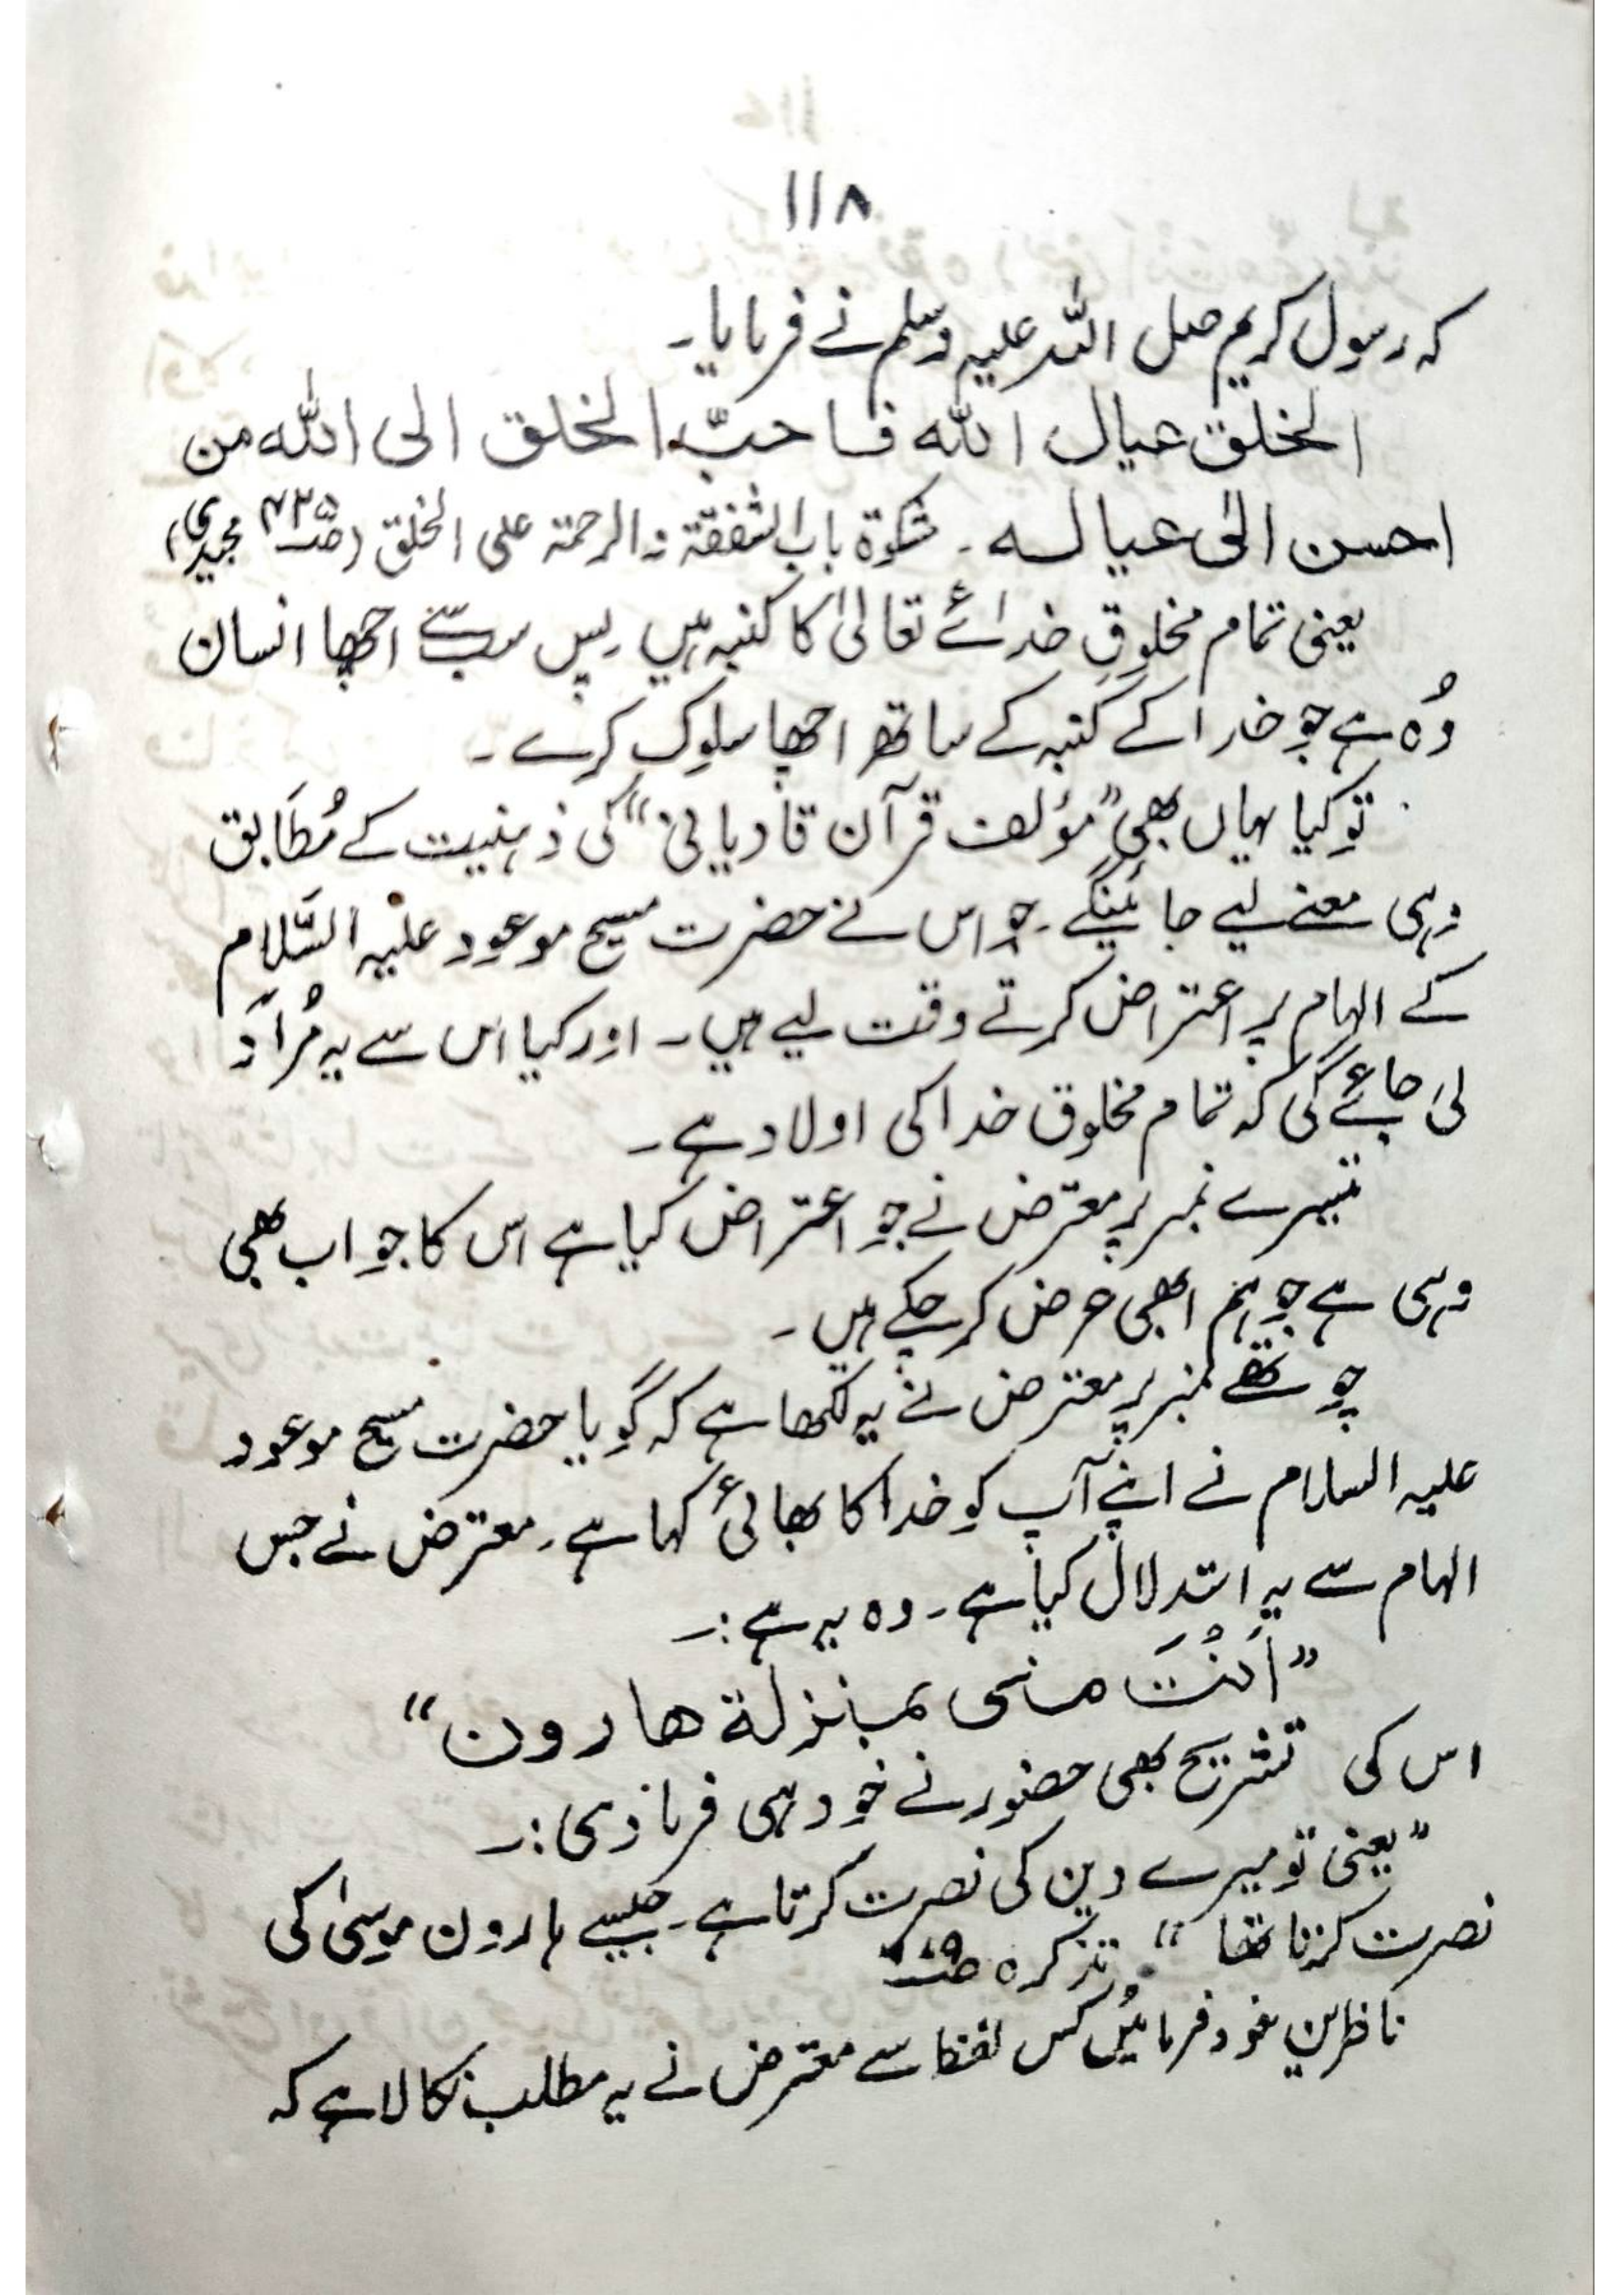 ۱۱۸
کہ رسول کریم صلی اللہ علیہ وسلم نے فرمایا۔
الخلق عیال اللہ فاحبّ الخلق الی اللہ من
احسن الیٰ عیالہ۔ مشکوٰۃ باب الشفقۃ والرحمۃ علی الخلق (ص۴۲۵ مجیدی)
یعنی تمام مخلوقِ خدائے تعالیٰ کا کنبہ ہیں پس سب سے اچھا انسان
وُہ ہے جو خدا کے کنبہ کے ساتھ اچھا سلوک کرے۔
تو کیا یہاں بھی ”مؤلف قرآن قادیانی“ کی ذہنیت کے مُطَابق
وہی معنے لیے جائینگے۔ جو اس نے حضرت مسیح موعود علیہ السَّلام
کے الہام پر اعتراض کرتے وقت لیے ہیں۔ اور کیا اس سے یہ مُرَاد
لی جائے گی کہ تمام مخلوق خدا کی اولاد ہے۔
تیسرے نمبر پر معترض نے جو اعتراض کیا ہے اس کا جواب بھی
وہی ہے جو ہم ابھی عرض کر چکے ہیں۔
چوتھے نمبر پر معترض نے یہ لکھا ہے کہ گویا حضرت مسیح موعود
علیہ السلام نے اپنے آپ کو خدا کا بھائی کہا ہے۔ معترض نے جس
الہام سے یہ استدلال کیا ہے۔ وہ یہ ہے:۔
”اَنْتَ منی بمنزلۃ ھارون“
اس کی تشریح بھی حضور نے خود ہی فرما دی:۔
”یعنی تو میرے دین کی نصرت کرتا ہے۔ جیسے ہارون موسیٰ کی
نصرت کرتا تھا“ تذکرہ
ناظرین غور فرمائیں کس لفظ سے معترض نے یہ مطلب نکالا ہے کہ